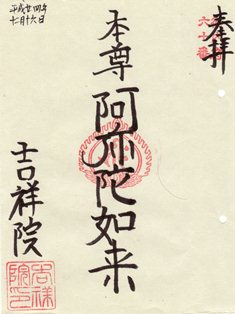 奉拝
六十番
本尊
阿弥陀如来
吉祥院
吉祥院印
平成廿四年
七月十六日